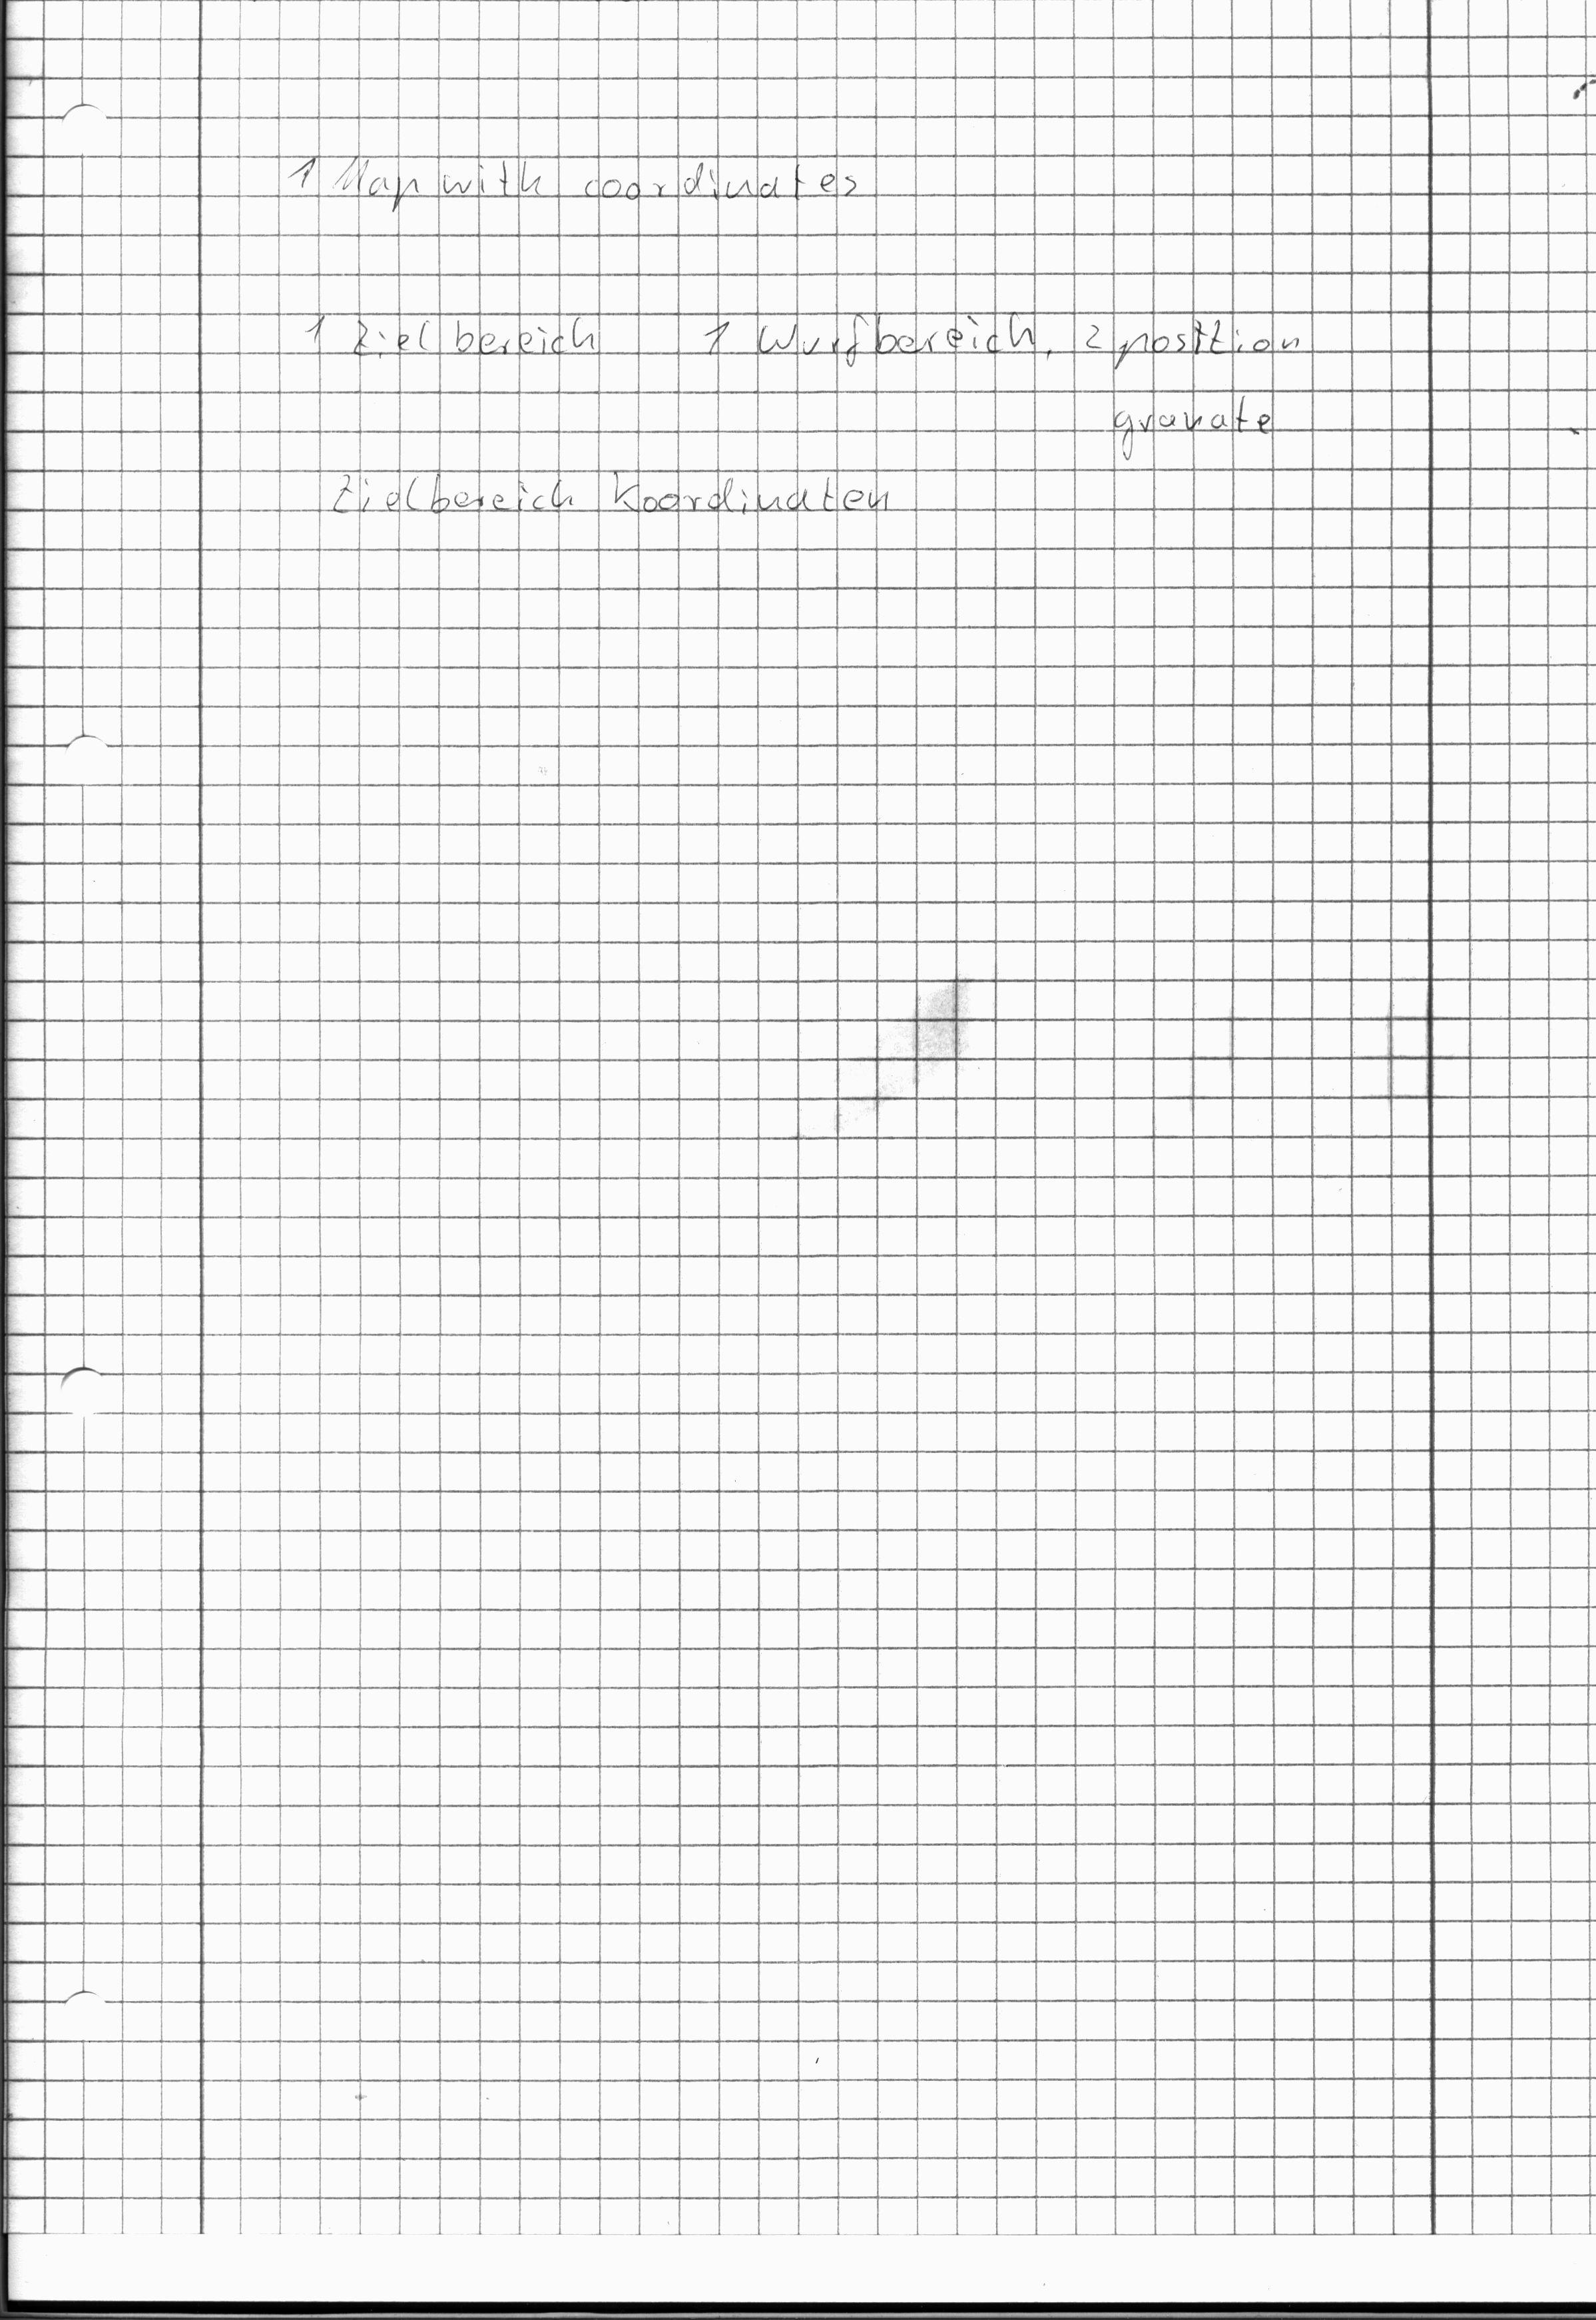 1 Map with coordinates
1 Zielbereich 1 Wurfbereich, 2 position
granate
Zielbereich Koordinaten